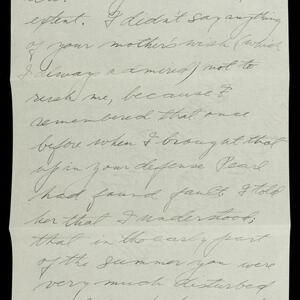 extent. I didn't say anything
of your mother's wish (which
I always admired) not to
me, because I
remembered that once
before when I brought that
up in your defense Pearl
had found fault. I told
her that I understood,
that in the early part
of the summer you were
very much disturbed